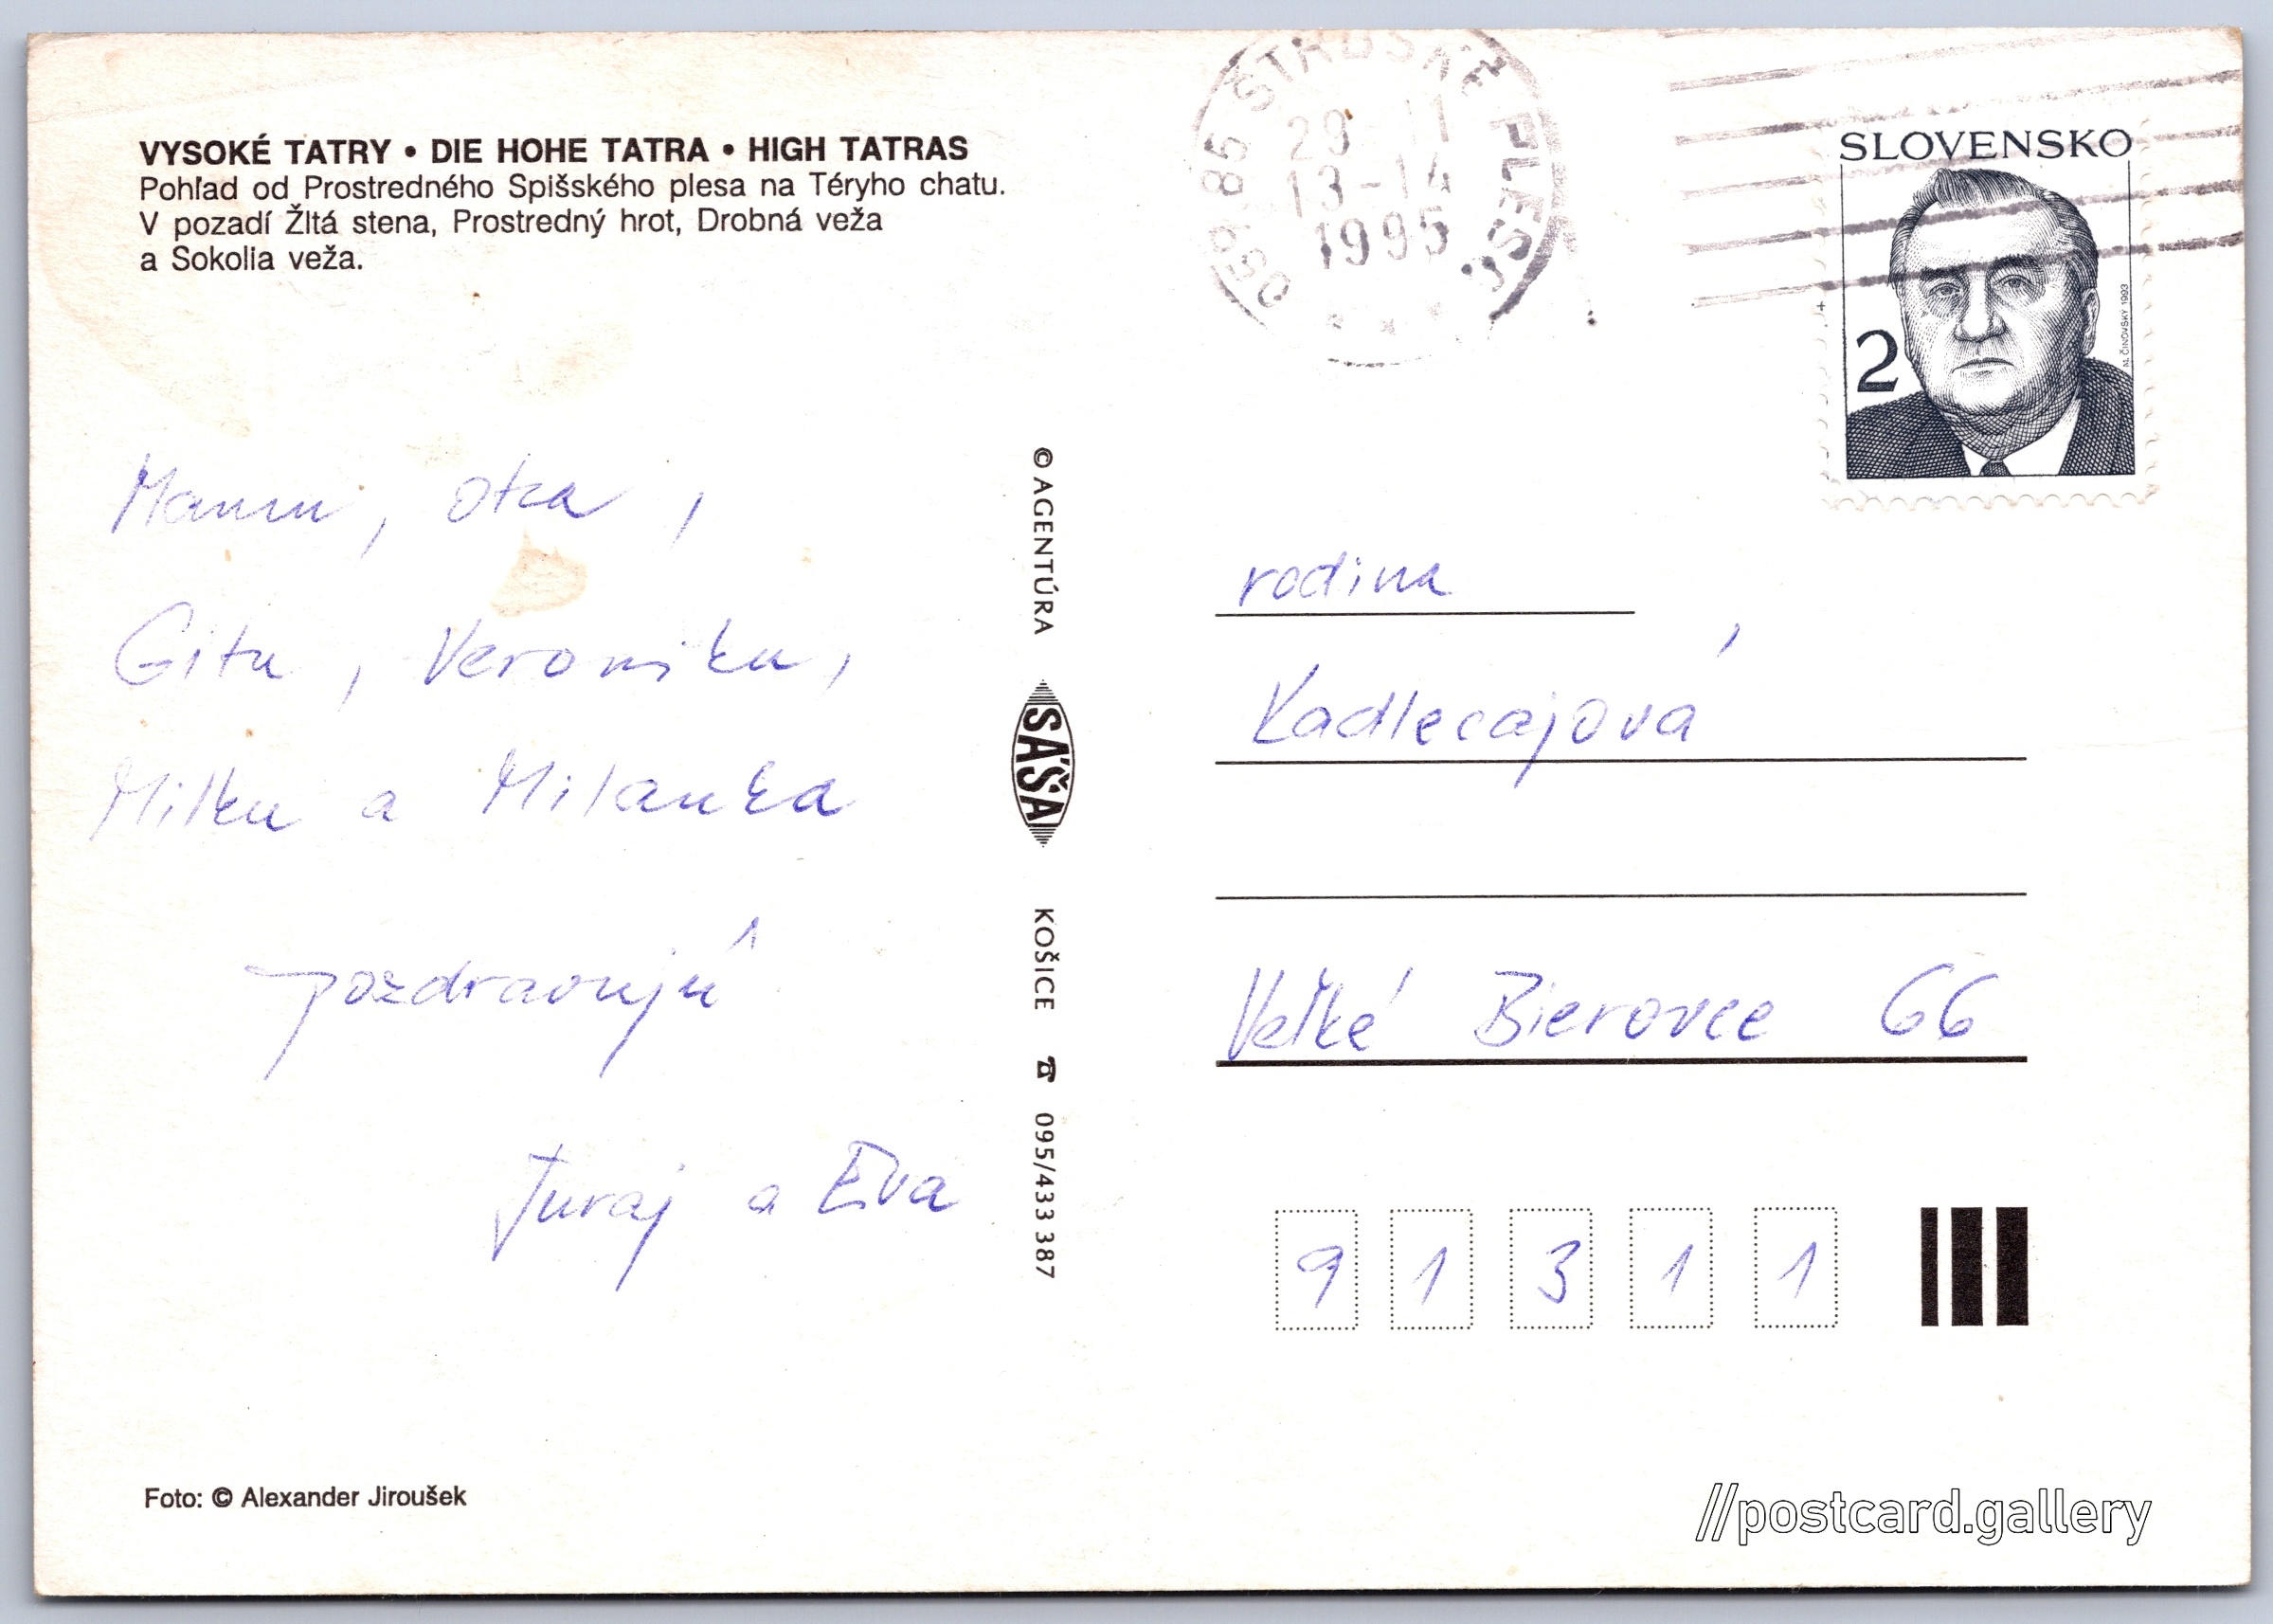 VYSOKÉ TATRY • DIE HOHE TATRA • HIGH TATRAS
Pohľad od Prostredného Spišského plesa na Téryho chatu.
V pozadí Žltá stena, Prostredný hrot, Drobná veža
a Sokolia veža.
Mamu, otca,
Gitu, Veroniku,
Milku a Milanka
pozdravujú
Juraj a Eva
Foto: © Alexander Jiroušek
© AGENTÚRA SAŠA KOŠICE ☎ 095/433 387
059 85 ŠTRBSKÉ PLESO
28 11
13-14
1995
SLOVENSKO
2
M. ČINOVSKÝ 1993
rodina
Kadlecajová
Veľké Bierovce 66
9 1 3 1 1
//postcard.gallery